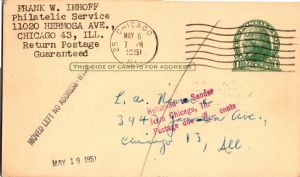 FRANK W. IMHOFF
Philatelic Service
11020 HERMOSA AVE.,
CHICAGO 43, ILL.
Return Postage
Guaranteed
CHICAGO
25
MAY 6
7 PM
1951
ILL.
THIS SIDE OF CARD IS FOR ADDRESS
MOVED LEFT NO ADDRESS
L. A.
Returned to Sender
from Chicago, Ill.
Postage due cents
Ave.,
Chicago 13, Ill.
MAY 19 1951